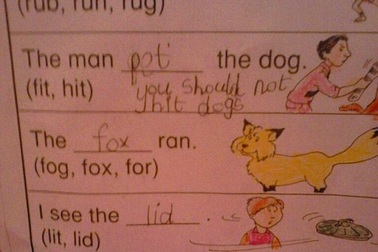 (rub, run, rug)
The man pet the dog.
(fit, hit) you should not
hit dogs
The fox ran.
(fog, fox, for)
I see the lid .
(lit, lid)